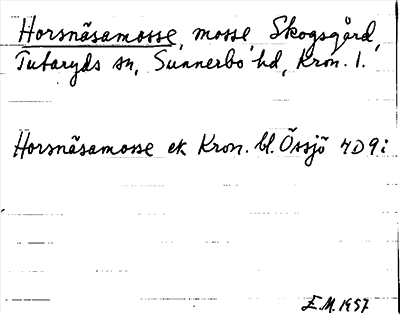 Horsnäsamosse, mosse, Skogsgård,
Tutaryds sn, Sunnerbo hd, Kron. l.
Horsnäsamosse ek Kron. bl. Össjö 4D9i
E.M. 1957